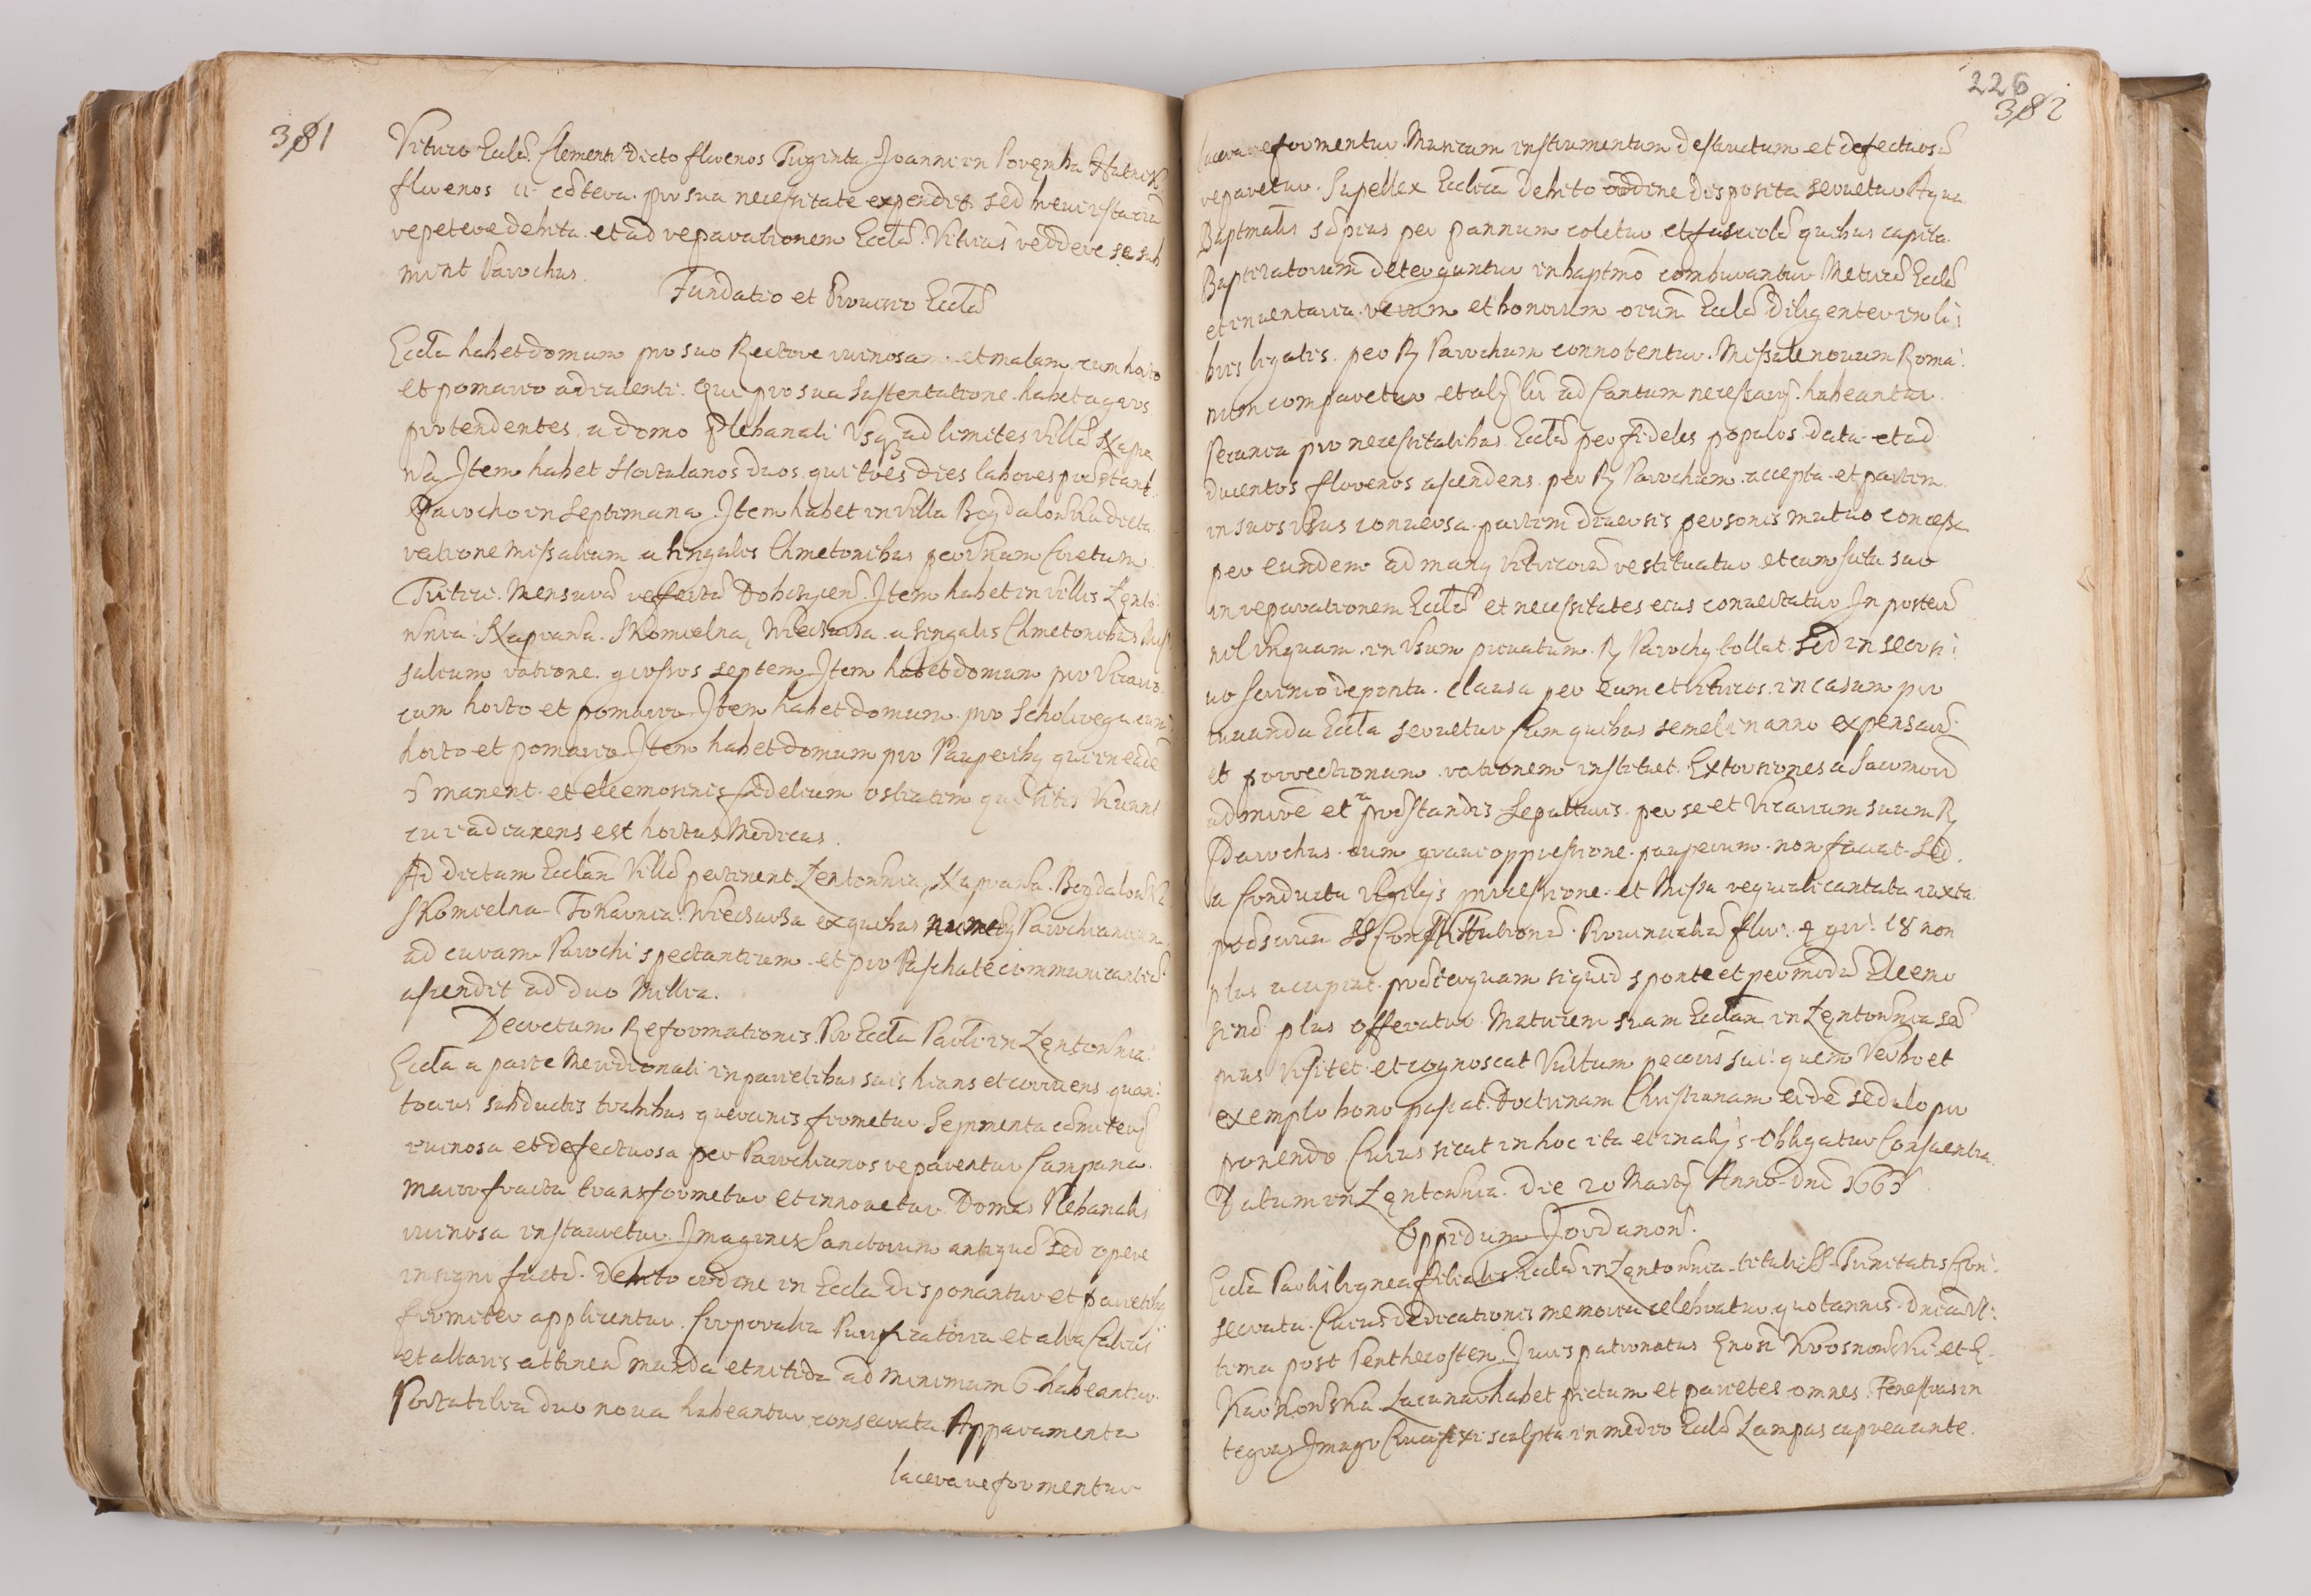 381
Vitrico Eccłae. Clementi dicto florenos Triginta Joanni in Poręmba Hutnik
florenos 11 caetera pro sua necessitate expendit sed brevi ista oia
repetere debita et ad reparationem Eccłae Vitricis reddere se sub
misit Parochus.
Fundatio et Provisio Eccłae
Eccła habet domum pro suo Rectore ruinosam et malam cum horto
et pomario adiacenti. Qui pro sua sustentatione habet agros
protendentes a domo Plebanali Usq ad limites Villae Krapra
wa Item habet Hortulanos duos, qui tres dies labores praestant
Parocho in Septimana. Item habet in Villa Bogdałowka dicta
ratione Missalium a singulis Chmetonibus per Unum Coretum
Tritici. Mensurae Dobcicen. Item habet in Villis Łęnto
wnia Krzprawa. Skomielna, Wieciurza a singulis Chmetonibus Miss
salium ratione grossos septem. Item habet domum pro Vicario
cum horto et pomario. Item habet domum pro Scholirega cum
horto et pomario. Item habet domum pro Pauperibq qui in eade
manent et eleemosinis fidelium ostiatim quaesitis Vivunt
cui adiacens est hortus Modicus.
Ad dictam Eccłam Villae pertinent Łentownia, Kraprawa. Bogdałowka
Skomielna Tokarnia Wieciurza ex quibus numerq Parochianorum
ad curam Parochi spectantium et pro Paschate communicantium
ascendit ad duo Millia.
Decretum Reformationis Pro Eccła Parłi in Łęntownia
Eccła a parte Meridionali in parietibus suis hians et corruens quan
tocius subductis trabibus quercinis firmetur. Sepimenta caemiterii
ruinosa et defectuosa per Parochianos reparentur Campana
maior fracta transformetur et innovetur Domus Plebanalis
ruinosa instauretur. Imagines Sanctorum antiquae sed opere
insigni factae. debito ordine in Eccła disponantur et parietibq
firmiter applicentur. Corporalia Purificatoria et alia Calicis
et altaris attinen munda et nitida ad minimum 6 habeantur
Portatilia duo nova habeantur consecrata. Apparamenta
lacera reformentur
226
382
lacera reformentur. Musicum instrumentum desructum et defectuosu
reparetur. Supellex Ecclica debito ordine disposita servetur Aqua
Baptmalis saepius per pannum coletur et fasciolae quibus capita
Baptizatorum deterguntur in baptmo comburantur. Metricae Eccłae
et inventaria rerum et bonorum oium Eccłae diligenter in li
bris ligatis per R Parochum connotentur. Missale novum Roma
num comparetur et alij lri ad Cantum necessarij habeantur
Pecunia pro necessitatibus Eccłae per fideles populos data et ad
ducentos florenos ascendens per R Parochum accepta et partim
in suos Usus conversa partim diversis personis mutuo concessa
per eundem ad manq Vitricoru restituatur et cum scitu suo
in reparationem Eccłae et necessitates eius convertatur In posteru
nil Unquam in Usum privatum R Parochq tollat. Sed in securi
ori scrinio deposita. Clausa per eum et Vitricos in casum pro
iuvanda Eccła servetur Cum quibus semel in anno expensarum
et provectionum rationem instituet. Extorsiones a Sacmoru
admine et a praestandis Sepulturis per se et Vicarium suum R
Parochus cum gravi oppressione pauperum non faciat. Sed
a Conductu Vigilijs processione et Missa requiali cantata iuxta
praescrium SS Constitutionu Provincialiu flor. 4 gr. 18 non
plus accipiat praeterquam si quid sponte et per modu Eleemo
sinae plus offeratur. Matricem suam Eccłam in Łęntownia sae
pius Visitet et cognoscat Vultum pecoris sui quem Verbo et
exemplo bono pascat. Doctrinam Christianam eide sedulo pro
ponendo Cuius sicut in hoc ita et in alijs Obligatur Conscientia.
Datum in Łęntownia die 20 Martij Anno Dni 1665
Oppidum Jordanow.
Eccła Parłis lignea filialis Eccłae in Łęntownia tituli SS. Trinitatis Con
secrata. Cuius dedicationis memoria celebratur quotannis Dnica Ul
tima post Penthecosten. Juris patronatus Gnosi Krosnowski et G.
Karkowska. Lacunar habet pictum et parietes omnes. Fenestras in
tegras Imago Crucifixi sculpta in medio Eccłae Lampas cuprea ante